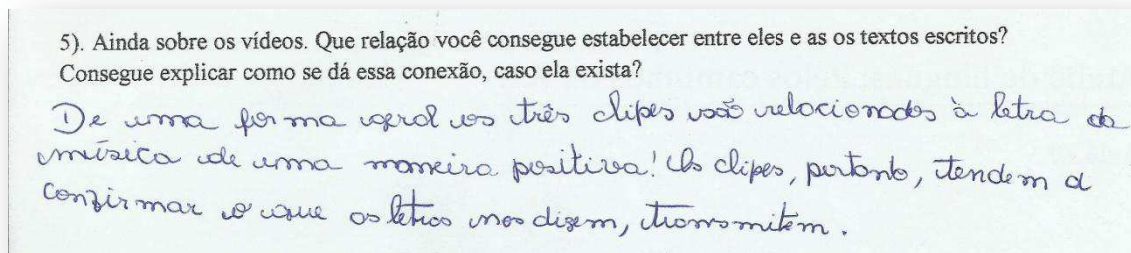 5). Ainda sobre os vídeos. Que relação você consegue estabelecer entre eles e as os textos escritos?
Consegue explicar como se dá essa conexão, caso ela exista?
De uma forma geral os três clipes são relacionados à letra da
música de uma maneira positiva! Os clipes, portanto, tendem a
confirmar o que as letras nos dizem, transmitem.